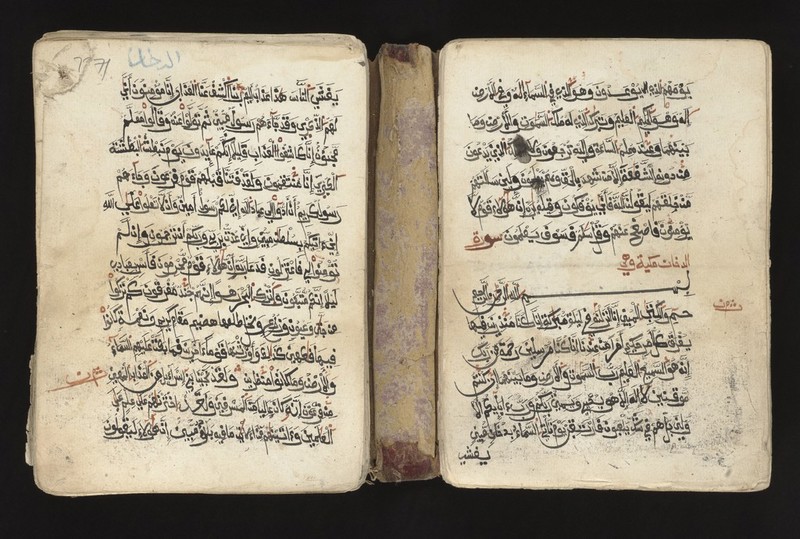 يومهم الذي يوعدون وهو الذي في السماء اله وفي الارض
اله وهو الحكيم العليم وتبرك الذي له ملك السموت والارض وما
بينهما وعنده علم الساعة واليه ترجعون ولا يملك الذين يدعون
من دونه الشفعة الا من شهد بالحق وهم يعلمون ولين سالتهم
من خلقهم ليقولن الله فاني يوفكون وقيله يرب ان هولاء قوم لا
يومنون فاصفح عنهم وقل سلم فسوف يعلمون سورة
الدخان مكية وهي
بسم الله الرحمن الرحيم
حم والكتب المبين انا انزلنه في ليلة مبركة انا كنا منذرين فيها
يفرق كل امر حكيم امرا من عندنا انا كنا مرسلين رحمة من ربك
انه هو السميع العليم رب السموت والارض وما بينهما ان كنتم
موقنين لا اله الا هو يحي ويميت ربكم ورب ءابايكم الا
ولين بل هم في شك يلعبون فارتقب يوم تاتي السماء بدخان مبين
يغشي
الدخان
يغشي الناس هذا عذاب اليم ربنا اكشف عنا العذاب انا مومنون اني
لهم الذكري وقد جاءهم رسول مبين ثم تولوا عنه وقالوا معلم
مجنون انا كاشفوا العذاب قليلا انكم عايدون يوم نبطش البطشة
الكبري انا منتقمون ولقد فتنا قبلهم قوم فرعون وجاءهم
رسول كريم ان ادوا الي عباد الله اني لكم رسول امين وان لا تعلوا علي الله
اني ءاتيكم بسلطن مبين واني عذت بربي وربكم ان ترجمون وان لم
تومنوا لي فاعتزلون فدعا ربه ان هولاء قوم مجرمون فاسر بعبادي
ليلا انكم متبعون واترك البحر رهوا انهم جند مغرقون كم تركوا
من جنت وعيون وزروع ومقام كريم ونعمة كانوا
فيها فكهين كذلك واورثنها قوما ءاخرين فما بكت عليهم السماء
والارض وما كانوا منظرين ولقد نجينا بني اسراءيل من العذاب المهين
من فرعون انه كان عاليا من المسرفين ولقد اخترنهم علي علم علي
العلمين وءاتينهم من الايت ما فيه بلؤا مبين ان هولاء ليقولون
ثمن